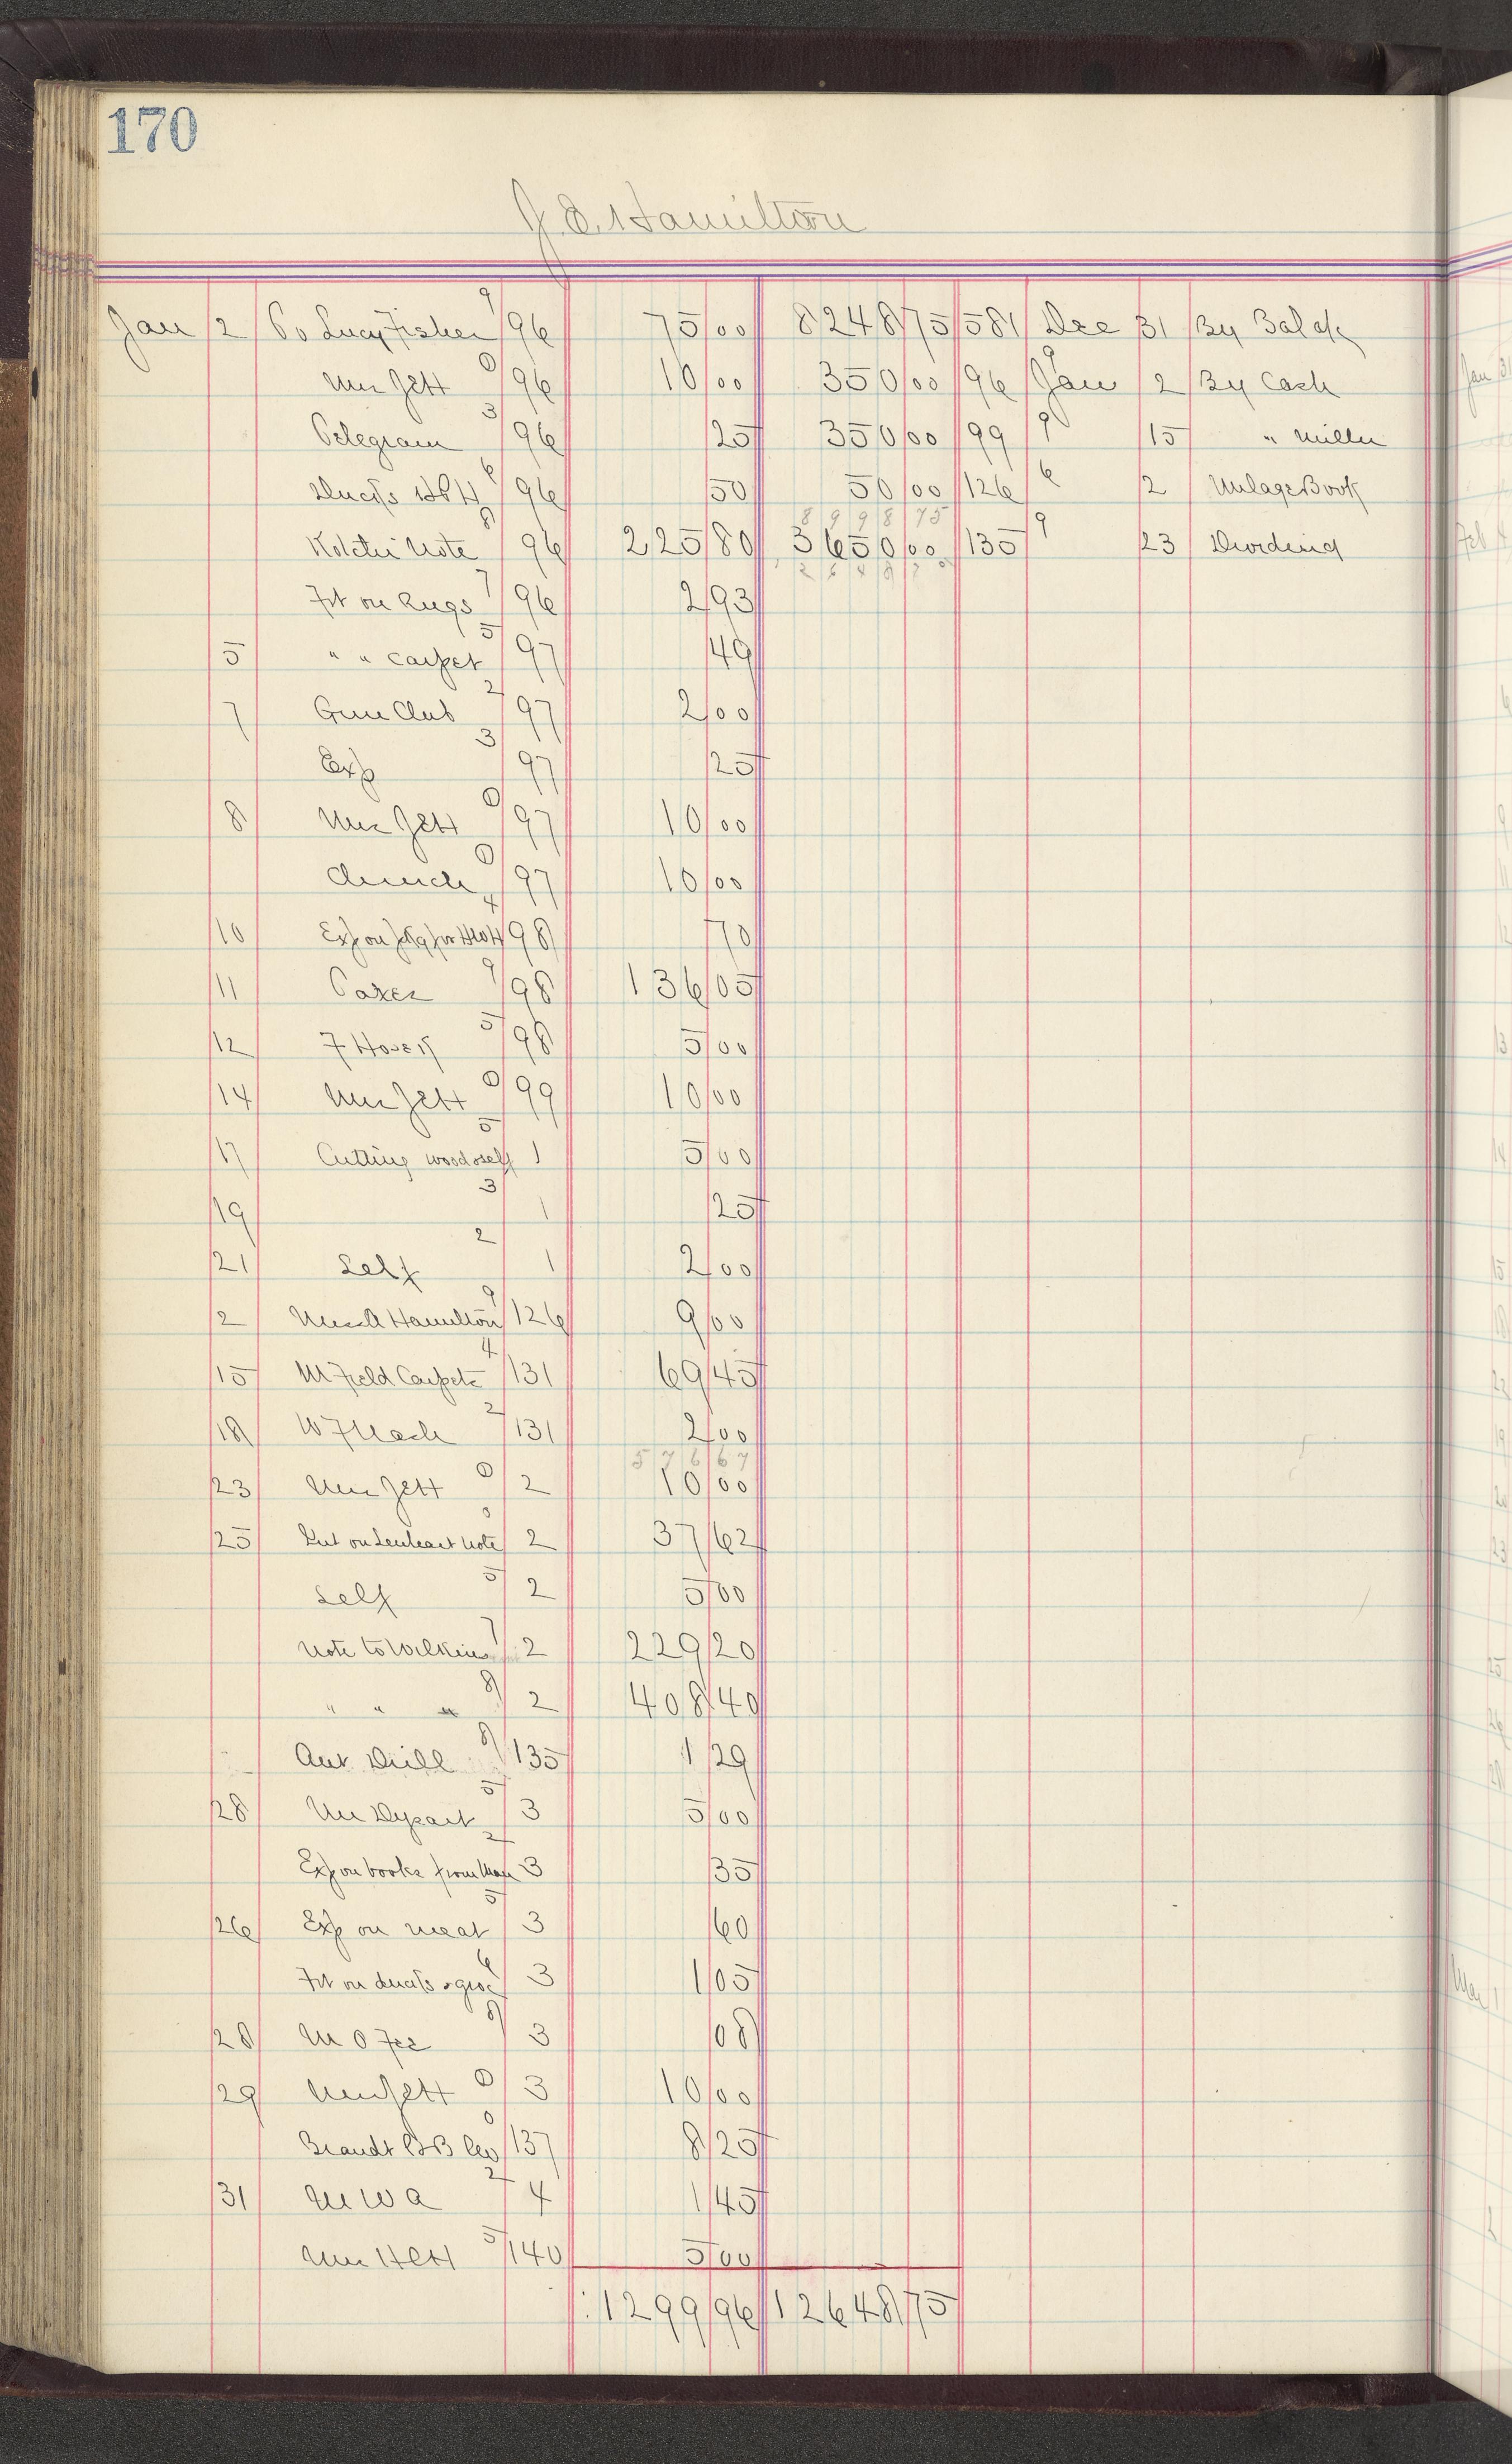 170
J. E. Hamilton
Jan 2 To Lucy Fisher 9 96 75 00 8248 75 581 Dec 31 By Balak
Mrs JEH 0 96 10 00 350 00 96 Jan 9 2 By Cash
Telegram 3 96 25 350 00 99 9 15 " Miller
Ducks HPH 6 96 50 50 00 126 6 2 MilageBook
8998 75
Note 8 96 225 80 3650 00 135 9 23 Dividend
12648 75
Frt on Rugs 7 96 2 93
5 " " carpet 5 97 49
7 Gun Club 2 97 2 00
Exp 3 97 25
8 Mrs JEH 0 97 10 00
Church 0 97 10 00
10 Exp on pkg for 4 98 70
11 Taxes 9 98 136 05
12 F Hovey 5 98 5 00
14 Mrs JEH 0 99 10 00
17 Cutting wood self 5 1 5 00
19 3 1 25
21 Self 2 1 2 00
2 Hamilton 9 126 9 00
15 M Field Carpets 4 131 69 45
18 W F Nash 2 131 2 00
576 67
23 Mrs JEH 0 2 10 00
25 Int on Lenheart note 2 37 62
Self 5 2 5 00
Note to Wilkins 7 2 229 20
" " " 8 2 408 40
Aut Drill 8 135 1 29
28 Mr Dysart 5 3 5 00
Exp on books from 2 3 35
26 Exp on meat 5 3 60
Frt on ducks & groc 6 3 1 05
28 M O Fee 8 3 08
29 Mrs JEH 0 3 10 00
Brandt 0 137 8 25
31 M W A 2 4 1 45
Mrs HEH 5 140 5 00
1299 96 12648 75